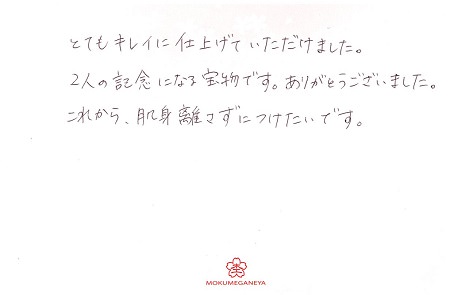 とてもキレイに仕上げていただけました。
2人の記念になる宝物です。ありがとうございました。
これから、肌身離さずにつけたいです。
MOKUMEGANEYA